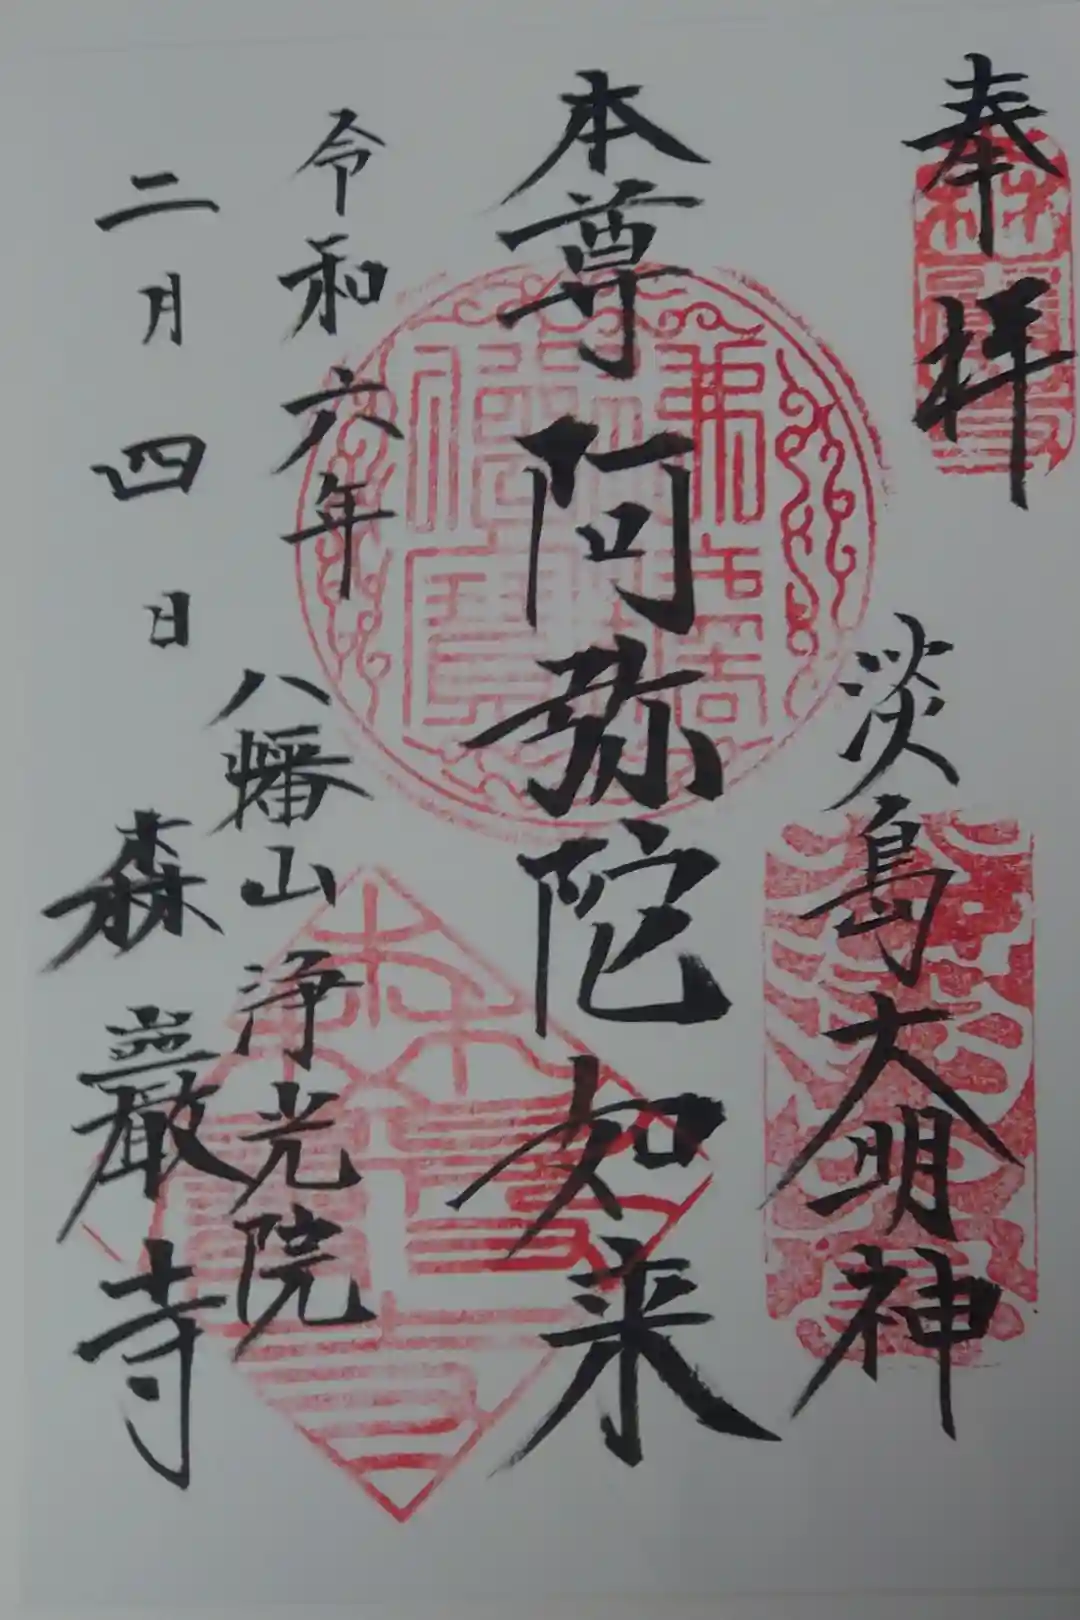 奉拝
淡島大明神
本尊 阿弥陀如来
令和六年
二月四日
八幡山 浄光院
森巌寺